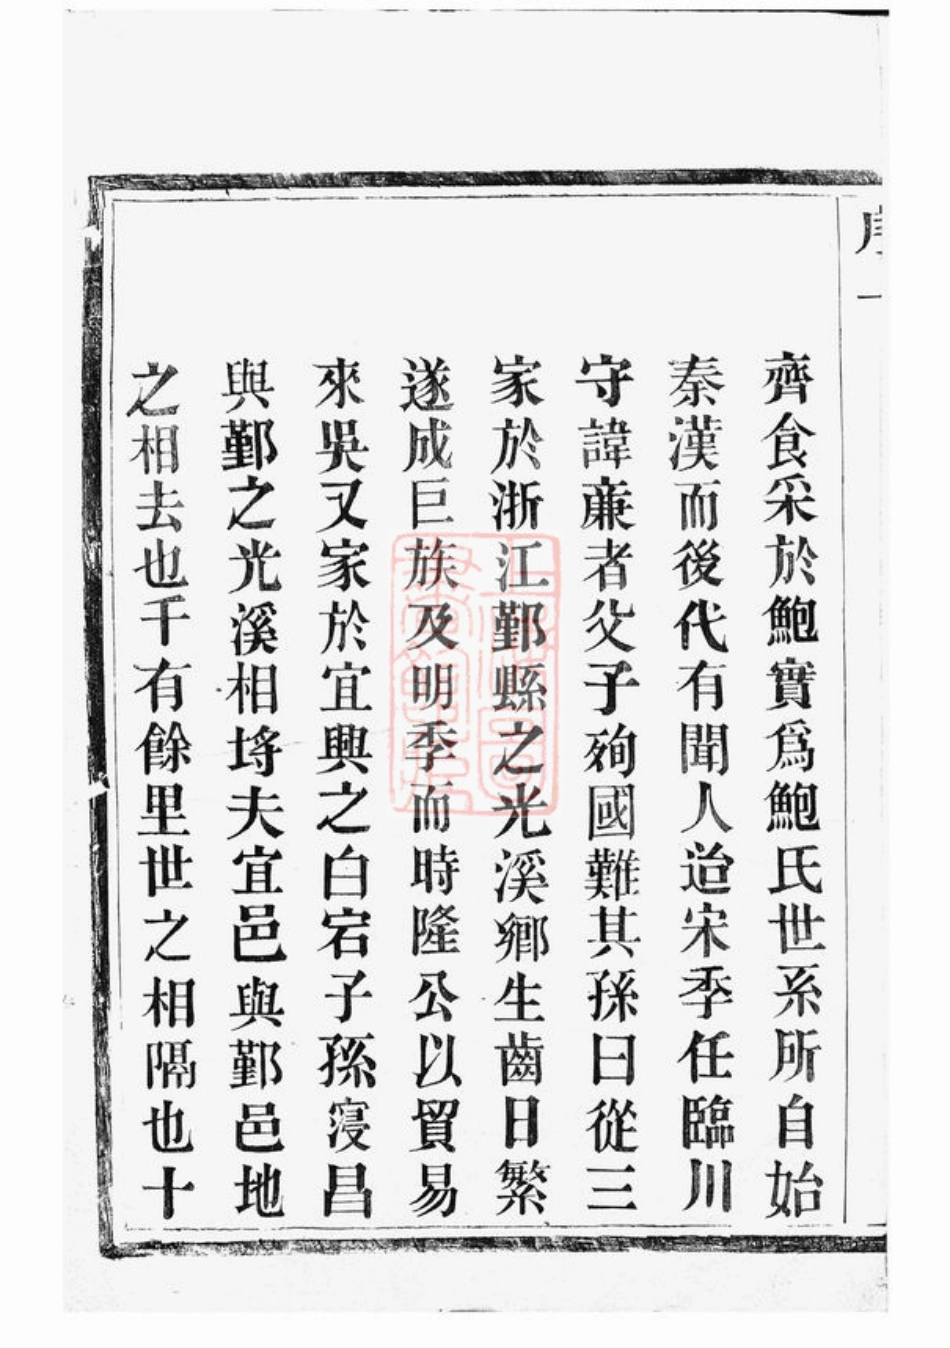 序 一
齊食采於鮑實爲鮑氏世系所自始
秦漢而後代有聞人迨宋季任臨川
守諱亷者父子殉國難其孫曰從三
家於浙江鄞縣之光溪鄉生齒日繁
遂成巨族及明季而時隆公以貿易
來吳又家於宜興之白宕子孫寖昌
與鄞之光溪相埓夫宜邑與鄞邑地
之相去也千有餘里世之相隔也十